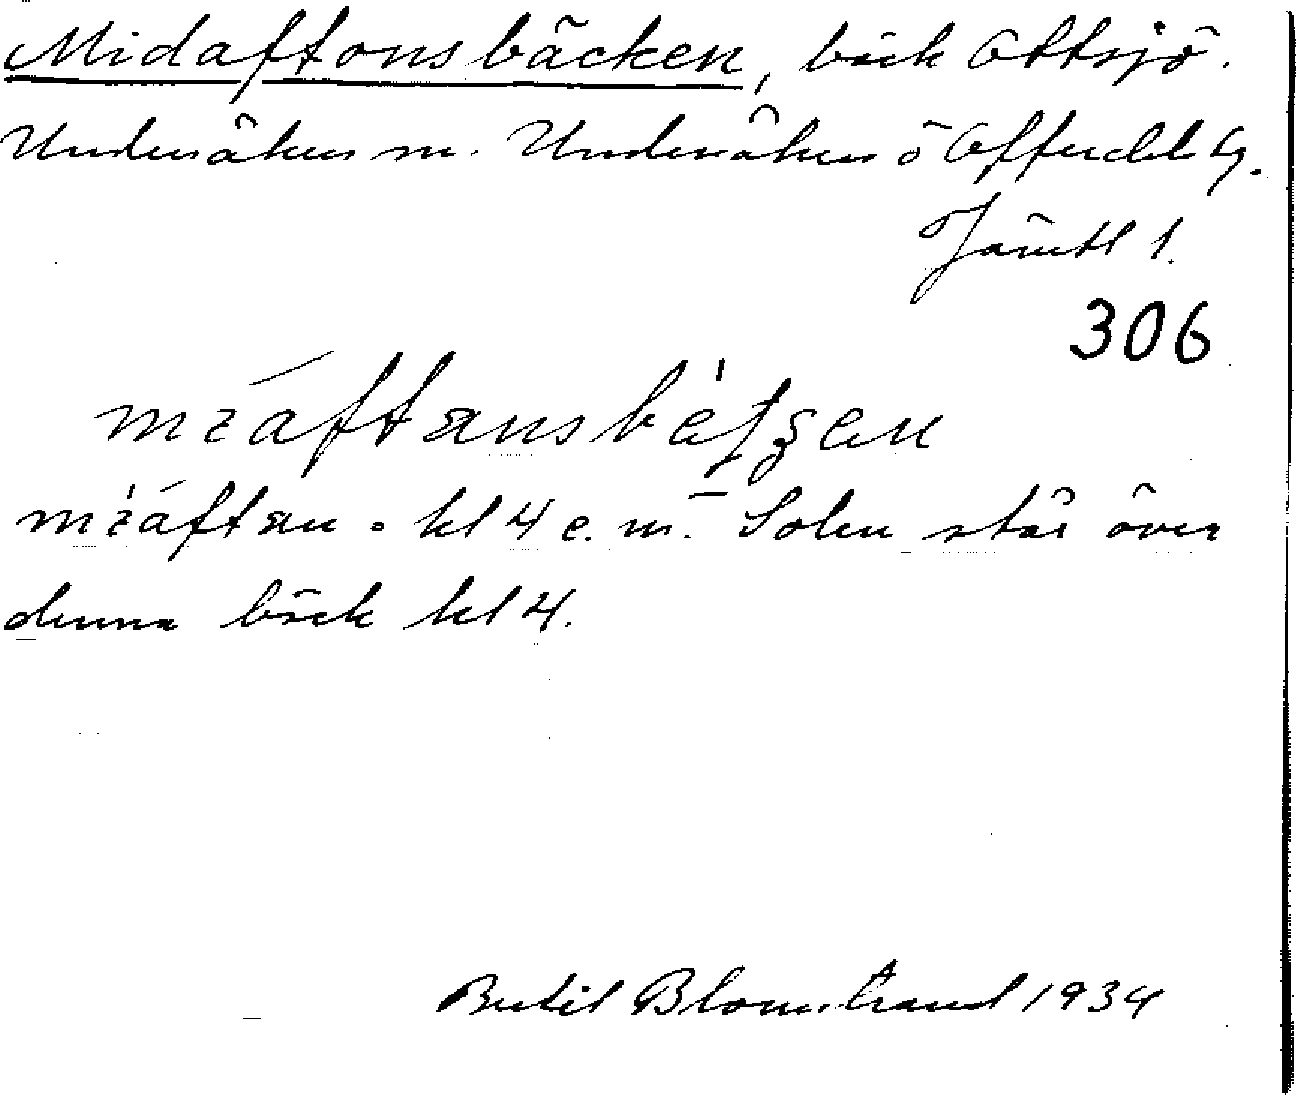 Midaftonsbäcken, bäck Ottsjö.
Undersåkers sn. Undersåkers o Offerdals tg.
Jämtl l.
306
mɪáftansbètʃen
mɪ̀áftan = kl 4 e.m. Solen står över
denna bäck kl 4.
Bertil Blomstrand 1934